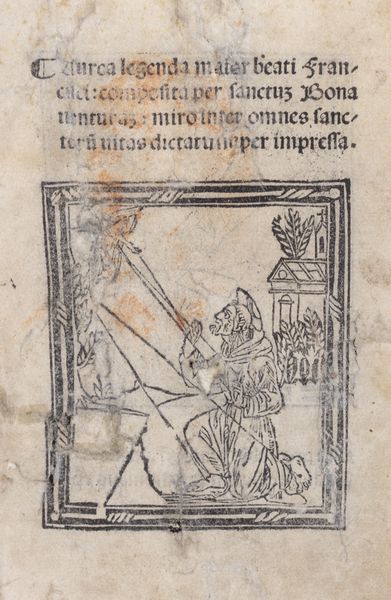 Aurea legenda maior beati Fran-
cisci: composita per sanctuz Bona
uenturaz: miro inter omnes sanc-
torũ uitas dictatu nuper impressa.